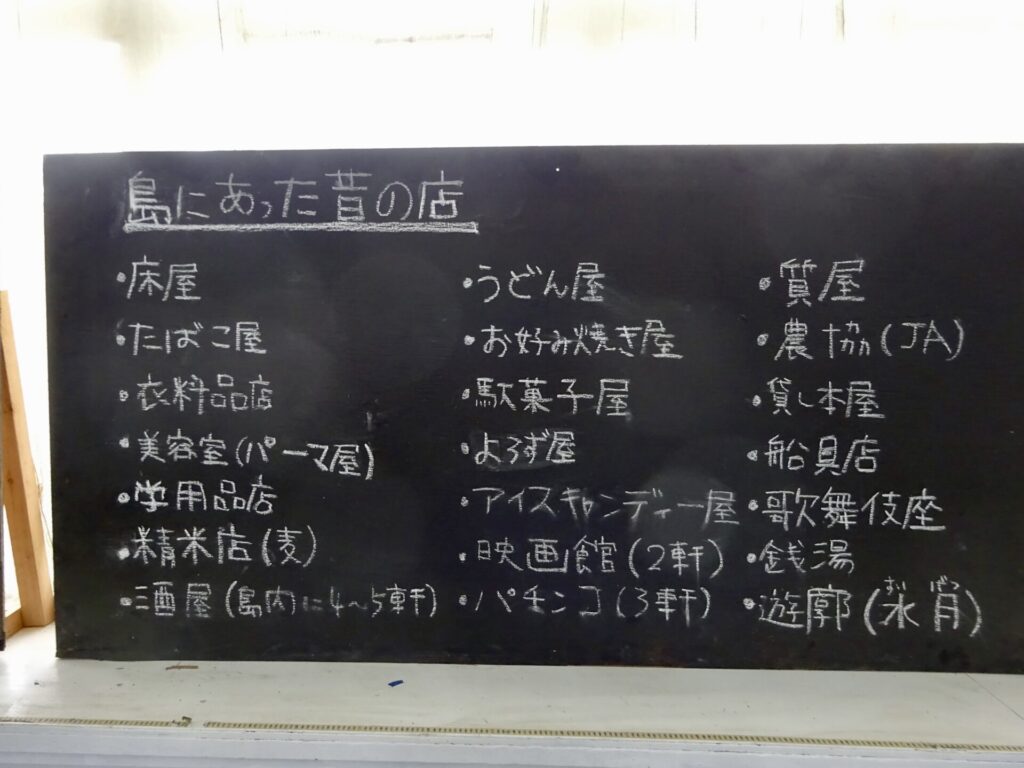 島にあった昔の店
・床屋
・たばこ屋
・衣料品店
・美容室(パーマ屋)
・学用品店
・精米店(麦)
・酒屋(島内に4〜5軒)
・うどん屋
・お好み焼き屋
・駄菓子屋
・よろず屋
・アイスキャンディー屋
・映画館(2軒)
・パチンコ(3軒)
・質屋
・農協(JA)
・貸し本屋
・船具店
・歌舞伎座
・銭湯
・遊廓(水肖)